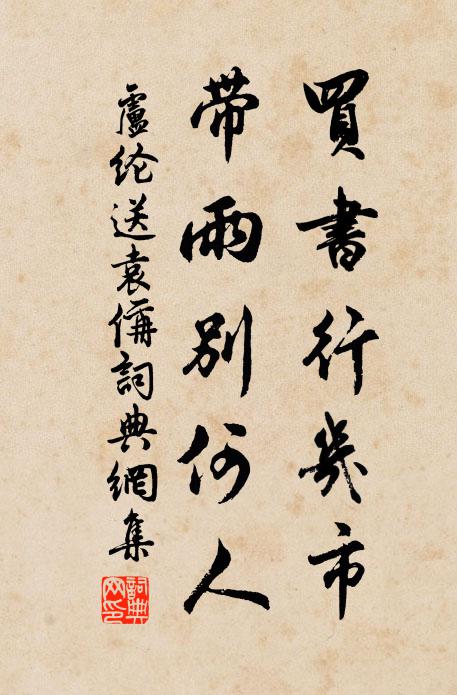 買書行幾市
帶雨別何人
盧纶送袁偁詞典網集
詞典网印